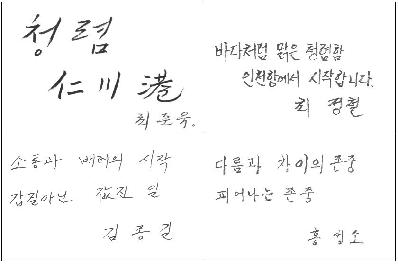 청렴
仁川港
최준욱.
소통과 배려의 시작
갑질아닌. 값진 일
김종길
바다처럼 맑은 청렴함
인천항에서 시작합니다.
최 정철
다름과 차이의 존중
피어나는 존중
홍 성소